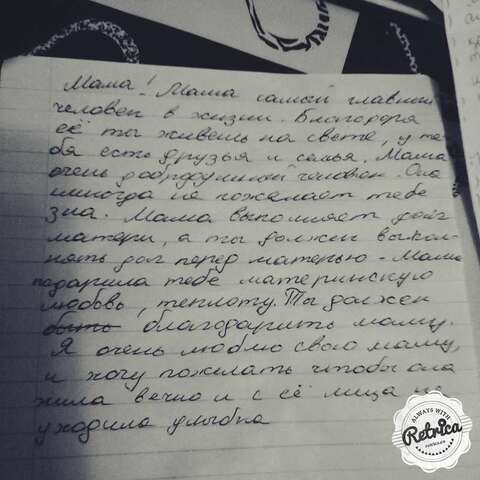 Мама! Мама самый главный
человек в жизни. Благодаря
её ты живешь на свете, у те-
бя есть друзья и семья. Мама
очень добродушный человек. Она
никогда не пожелает тебе
зла. Мама выполняет долг
матери, а ты должен выпол-
нять долг перед матерью. Мама
подарила тебе материнскую
любовь, теплоту. Ты должен
быть благодарить маму.
Я очень люблю свою маму,
и хочу пожелать чтобы она
жила вечно и с её лица не
уходила улыбка
ALWAYS WITH
Retrica